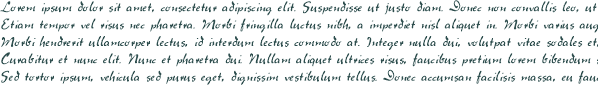 Lorem ipsum dolor sit amet, consectetur adipiscing elit. Suspendisse ut justo diam. Donec non convallis leo, ut
Etiam tempor vel risus nec pharetra. Morbi fringilla luctus nibh, a imperdiet nisl aliquet in. Morbi varius aug
Morbi hendrerit ullamcorper lectus, id interdum lectus commodo at. Integer nulla dui, volutpat vitae sodales et,
Curabitur et nunc elit. Nunc et pharetra dui. Nullam aliquet ultrices risus, faucibus pretium lorem bibendum
Sed tortor ipsum, vehicula sed purus eget, dignissim vestibulum tellus. Donec accumsan facilisis massa, eu fauc